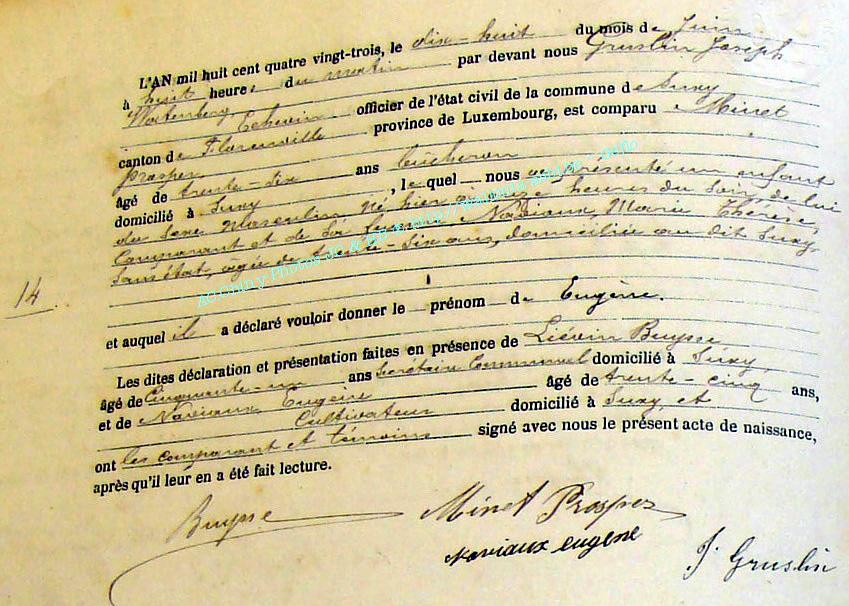 L'AN mil huit cent quatre vingt-trois, le dix-huit du mois de Juin
à huit heures du matin par devant nous Gruslin Joseph
Echevin officier de l'état civil de la commune de Suxy
canton de Florenville province de Luxembourg, est comparu Minet
Prosper
âgé de trente-six ans bûcheron
domicilié à Suxy, le quel nous a présenté un enfant
du sexe masculin né hier à onze heures du soir, de lui
Comparant et de sa femme Naviaux, Marie Thérèse,
sans état, agée de trente-six ans, domiciliée au dit Suxy,
14
et auquel il a déclaré vouloir donner le prénom de Eugène.
Les dites déclaration et présentation faites en présence de Liévin Buysse
âgé de Cinquante-un ans Secrétaire Communal domicilié à Suxy,
et de Naviaux Eugène âgé de trente-cinq ans,
Cultivateur domicilié à Suxy, et
ont les comparant et témoins signé avec nous le présent acte de naissance,
après qu'il leur en a été fait lecture.
Buysse
Minet Prosper
Naviaux eugene
J. Gruslin